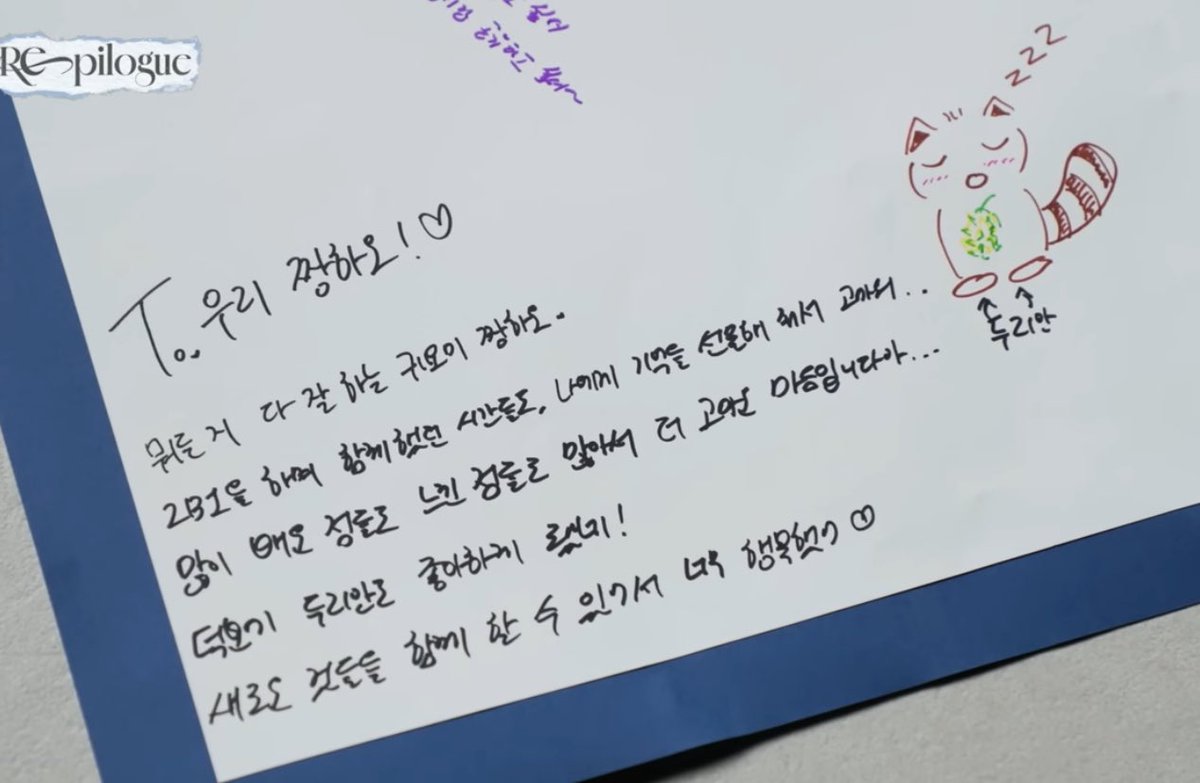 RE-pilogue
zzz
To. 우리 짱하오!♡
뭐든 거 다 잘 하는 귀요미 짱하오.
ZB1을 하며 함께했던 시간들도, 나에게 기억을 선물해 줘서 고마워..
두리안
많이 배운 점들도 느낀 점들도 많아서 더 고마운 마음입니다아...
덕분에 두리안도 좋아하게 됐지!
새로운 것들을 함께 할 수 있어서 너무 행복했어 ♡